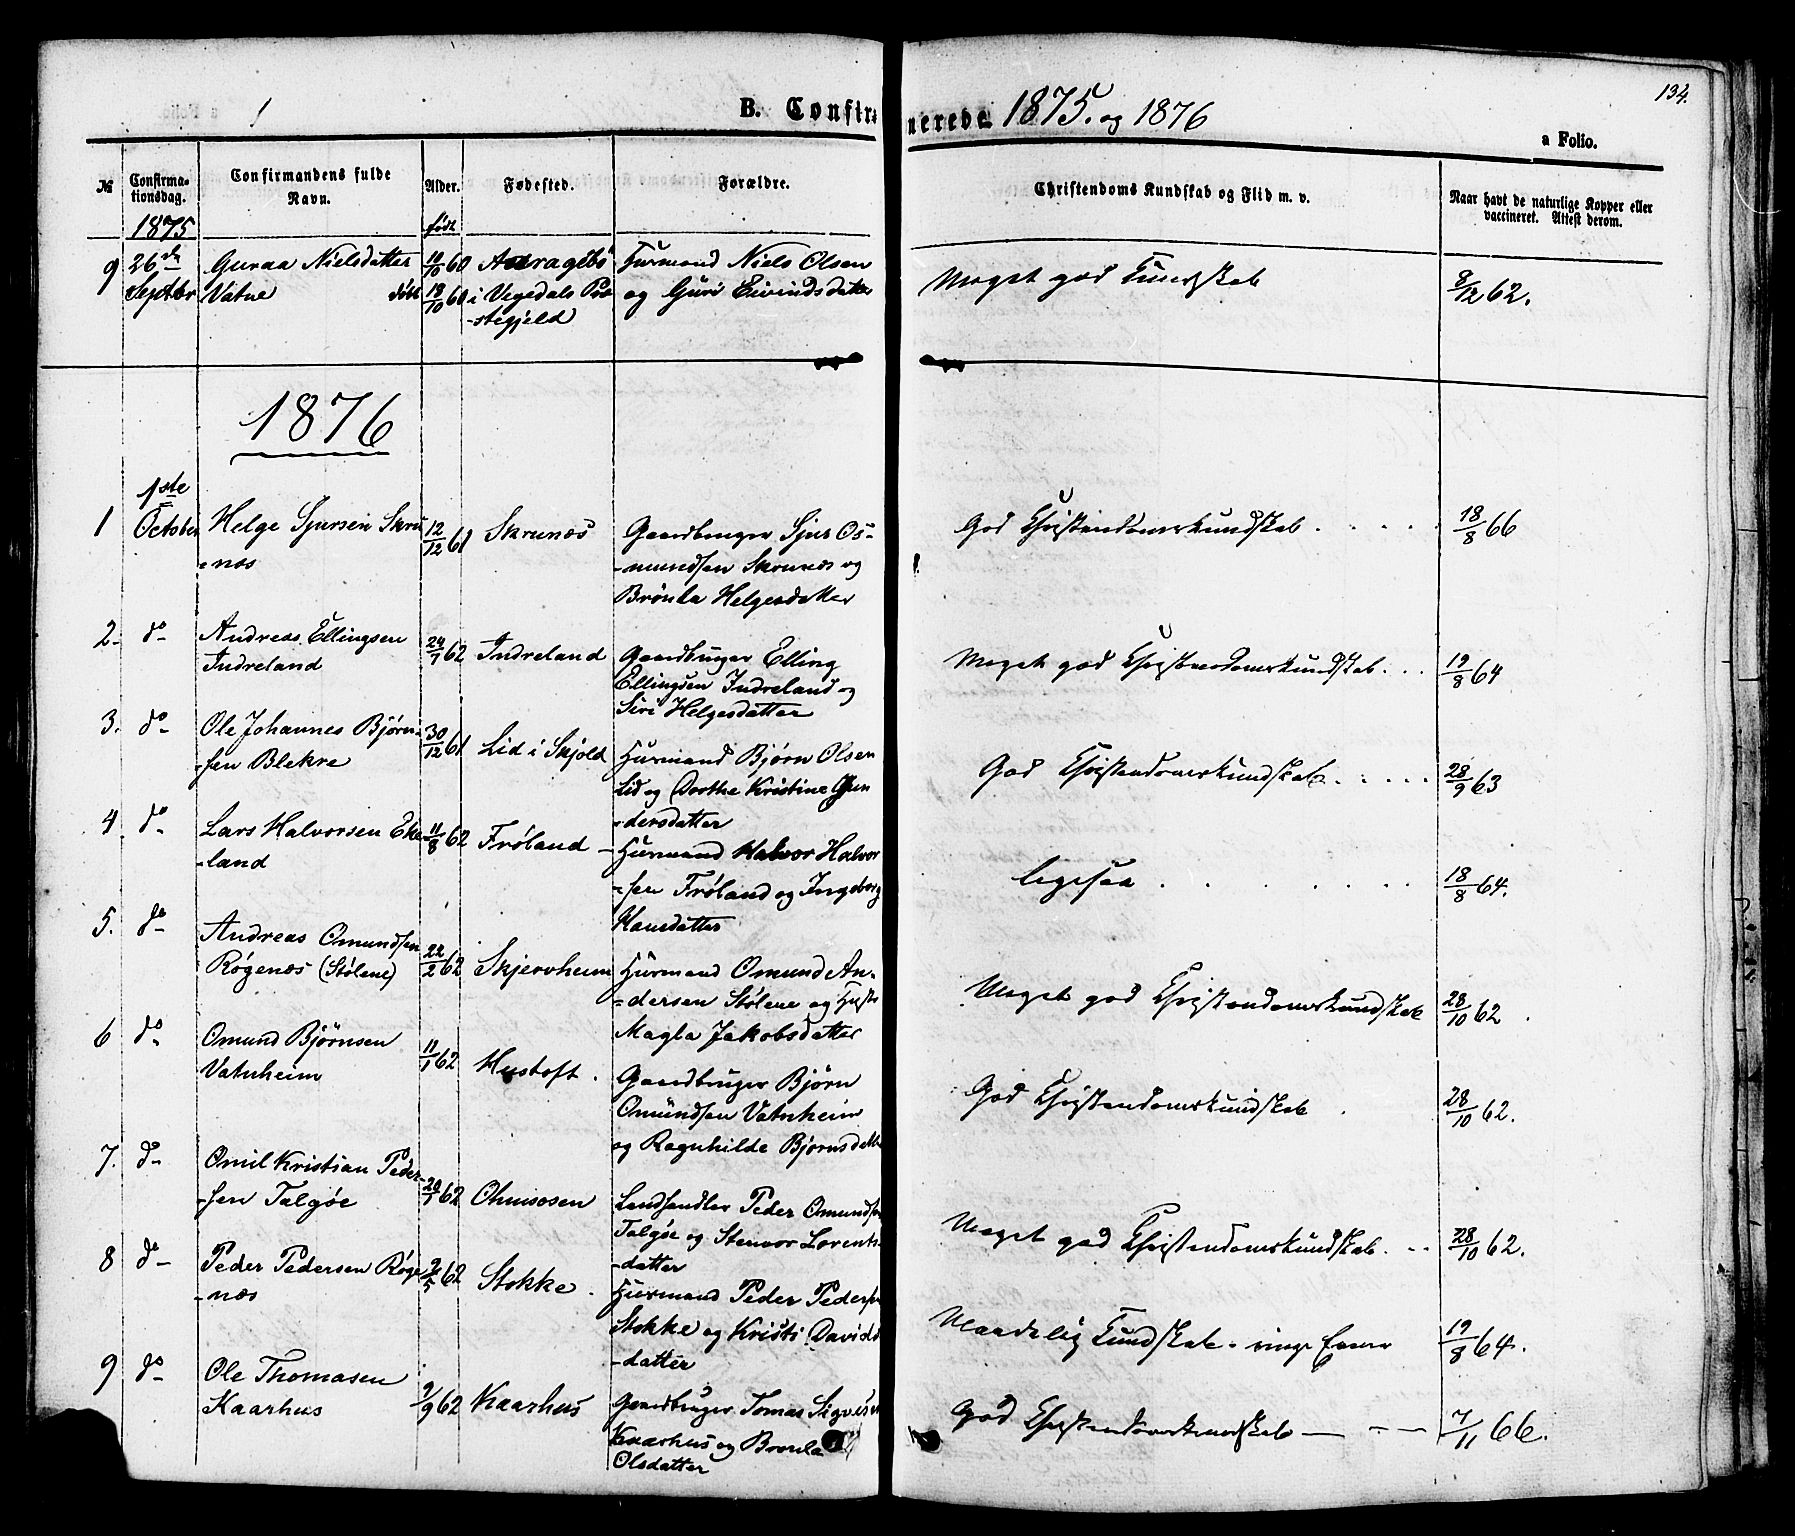 134.
B. Confirmerede 1875. og 1876
a Folio.
№ Confirmationsdag. Confirmandens fulde Navn. Alder. Fødested. Forældre. Christendoms Kundskab og Flid m. v. Naar havt de naturlige Kopper eller vaccineret. Attest derom.
1875 født
9 26de Guraa Nielsdatter 10/10 60 i Husmand Niels Olsen Meget god Kundskab 8/12 62.
Septbr Vatne døbt 18/10 60 i Vegedals Præ- og Guri Eivindsdatter
-stegjeld
1876
1ste
1 October Helge Sjursen Skru 12/12 61 Skrunæs Gaardbruger Sjur Os- God Christendomskundskab . . . . 18/8 66
-næs -mundsen Skrunæs og
Brönla Helgesdatter
2. do Andreas Ellingsen 24/7 62 Indreland Gaardbruger Elling Meget god Christendomskundskab. . . 19/8 64
Indreland Ellingsen Indreland og
Siri Helgesdatter
3. do Ole Johannes Bjørn- 30/12 61 Lid i Skjold Husmand Bjørn Olsen God Christendomskundskab . . . . 28/9 63
-sen Blekre Lid og Dorthe Kristine Gun
-dersdatter
4. do Lars Halvorsen Eke 11/8 62 Frøland - Husmand Halvor Halvor ligesaa . . . . . 18/8 64.
-land -sen Frøland og Ingeborg
Hansdatter
5. do Andreas Omundsen 22/2 62 Skjervheim Husmand Omund An- Meget god Christendomskundskab 28/10 62 .
Røgenæs (Stølene) -dersen Stølene og Hust
Magla Jakobsdatter
6 do Omund Bjørnsen 11/1 62 Hustoft . Gaardbruger Bjørn God Christendomskundskab . 28/10 62.
Vatnheim Omundsen Vatnheim
og Ragnhilde Bjørnsdatte
7. do Omil Kristian Peder- 20/1 62 Landhandler Peder Omundse Meget god Christendomskundskab. . . 28/10 62.
-sen Talgøe Talgøe og Stenvor Lorents
-datter
8 do Peder Pedersen Røge 2/5 62 Stokke . Husmand Peder Peders Maadelig Kundskab. ringe Evner 19/8 64.
-næs Stokke og Kristi Davids
-datter
9 do Ole Thomasen 9/9 62 Kaarhus Gaardbruger Tomas God Christendomskundskab — - — 7/11 66.
Kaarhus Kaarhus og
Olsdatter